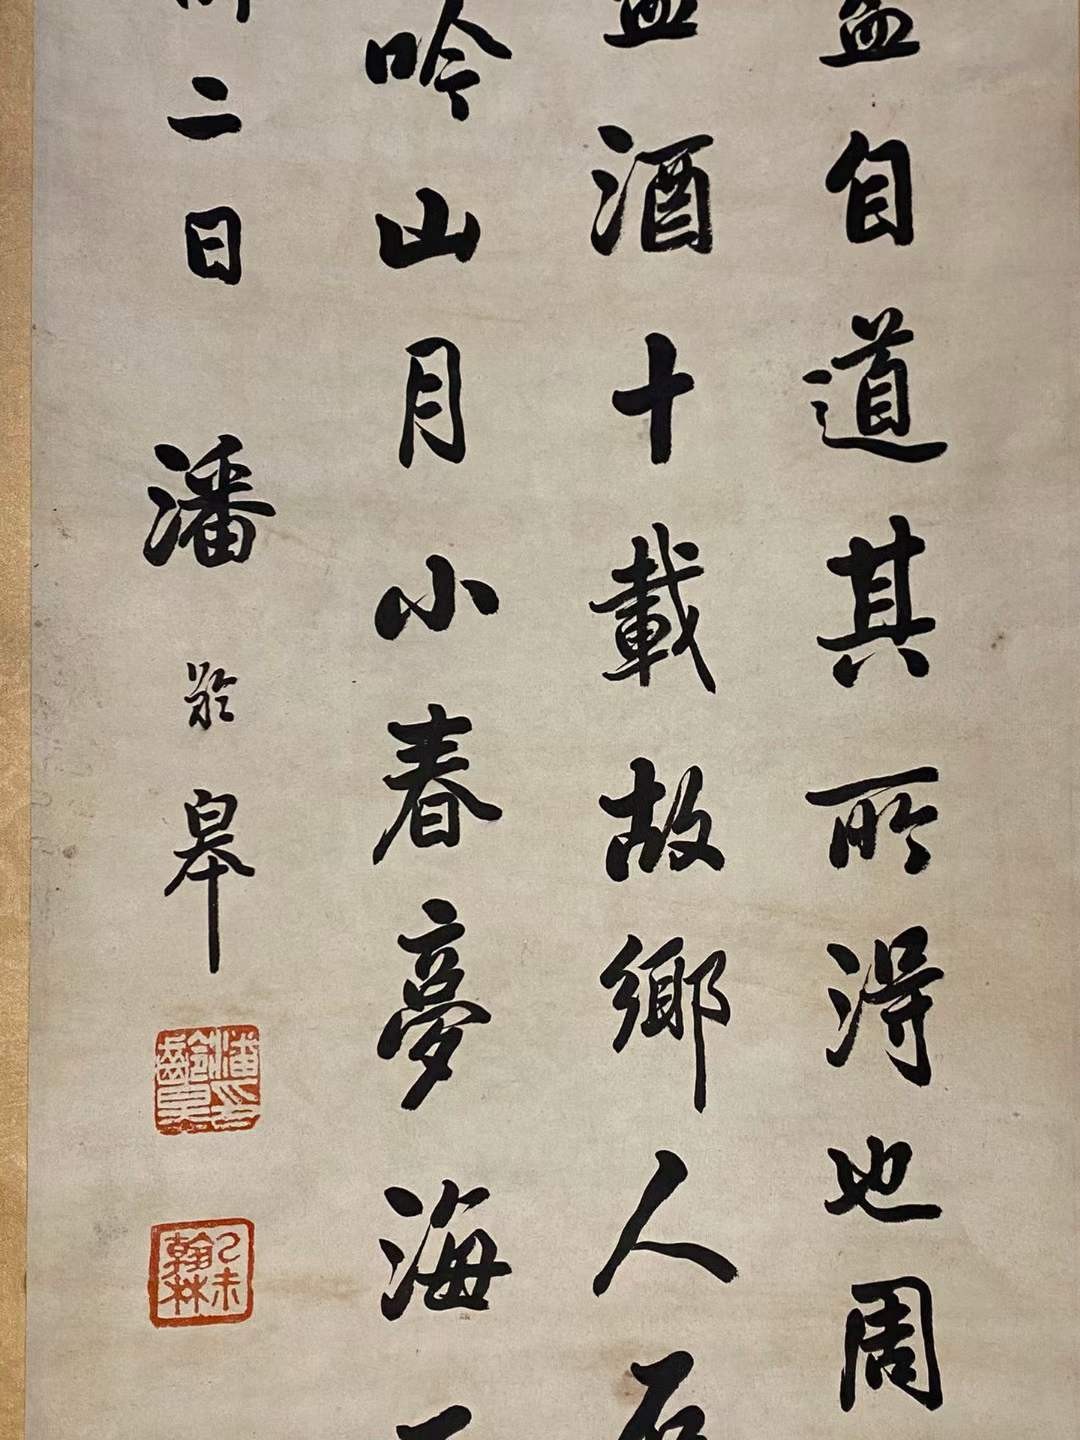 盆自道其所得也周
酒十載故鄉人
吟山月小春夢海
二日潘齡皋
潘齡皋印
乙未翰林